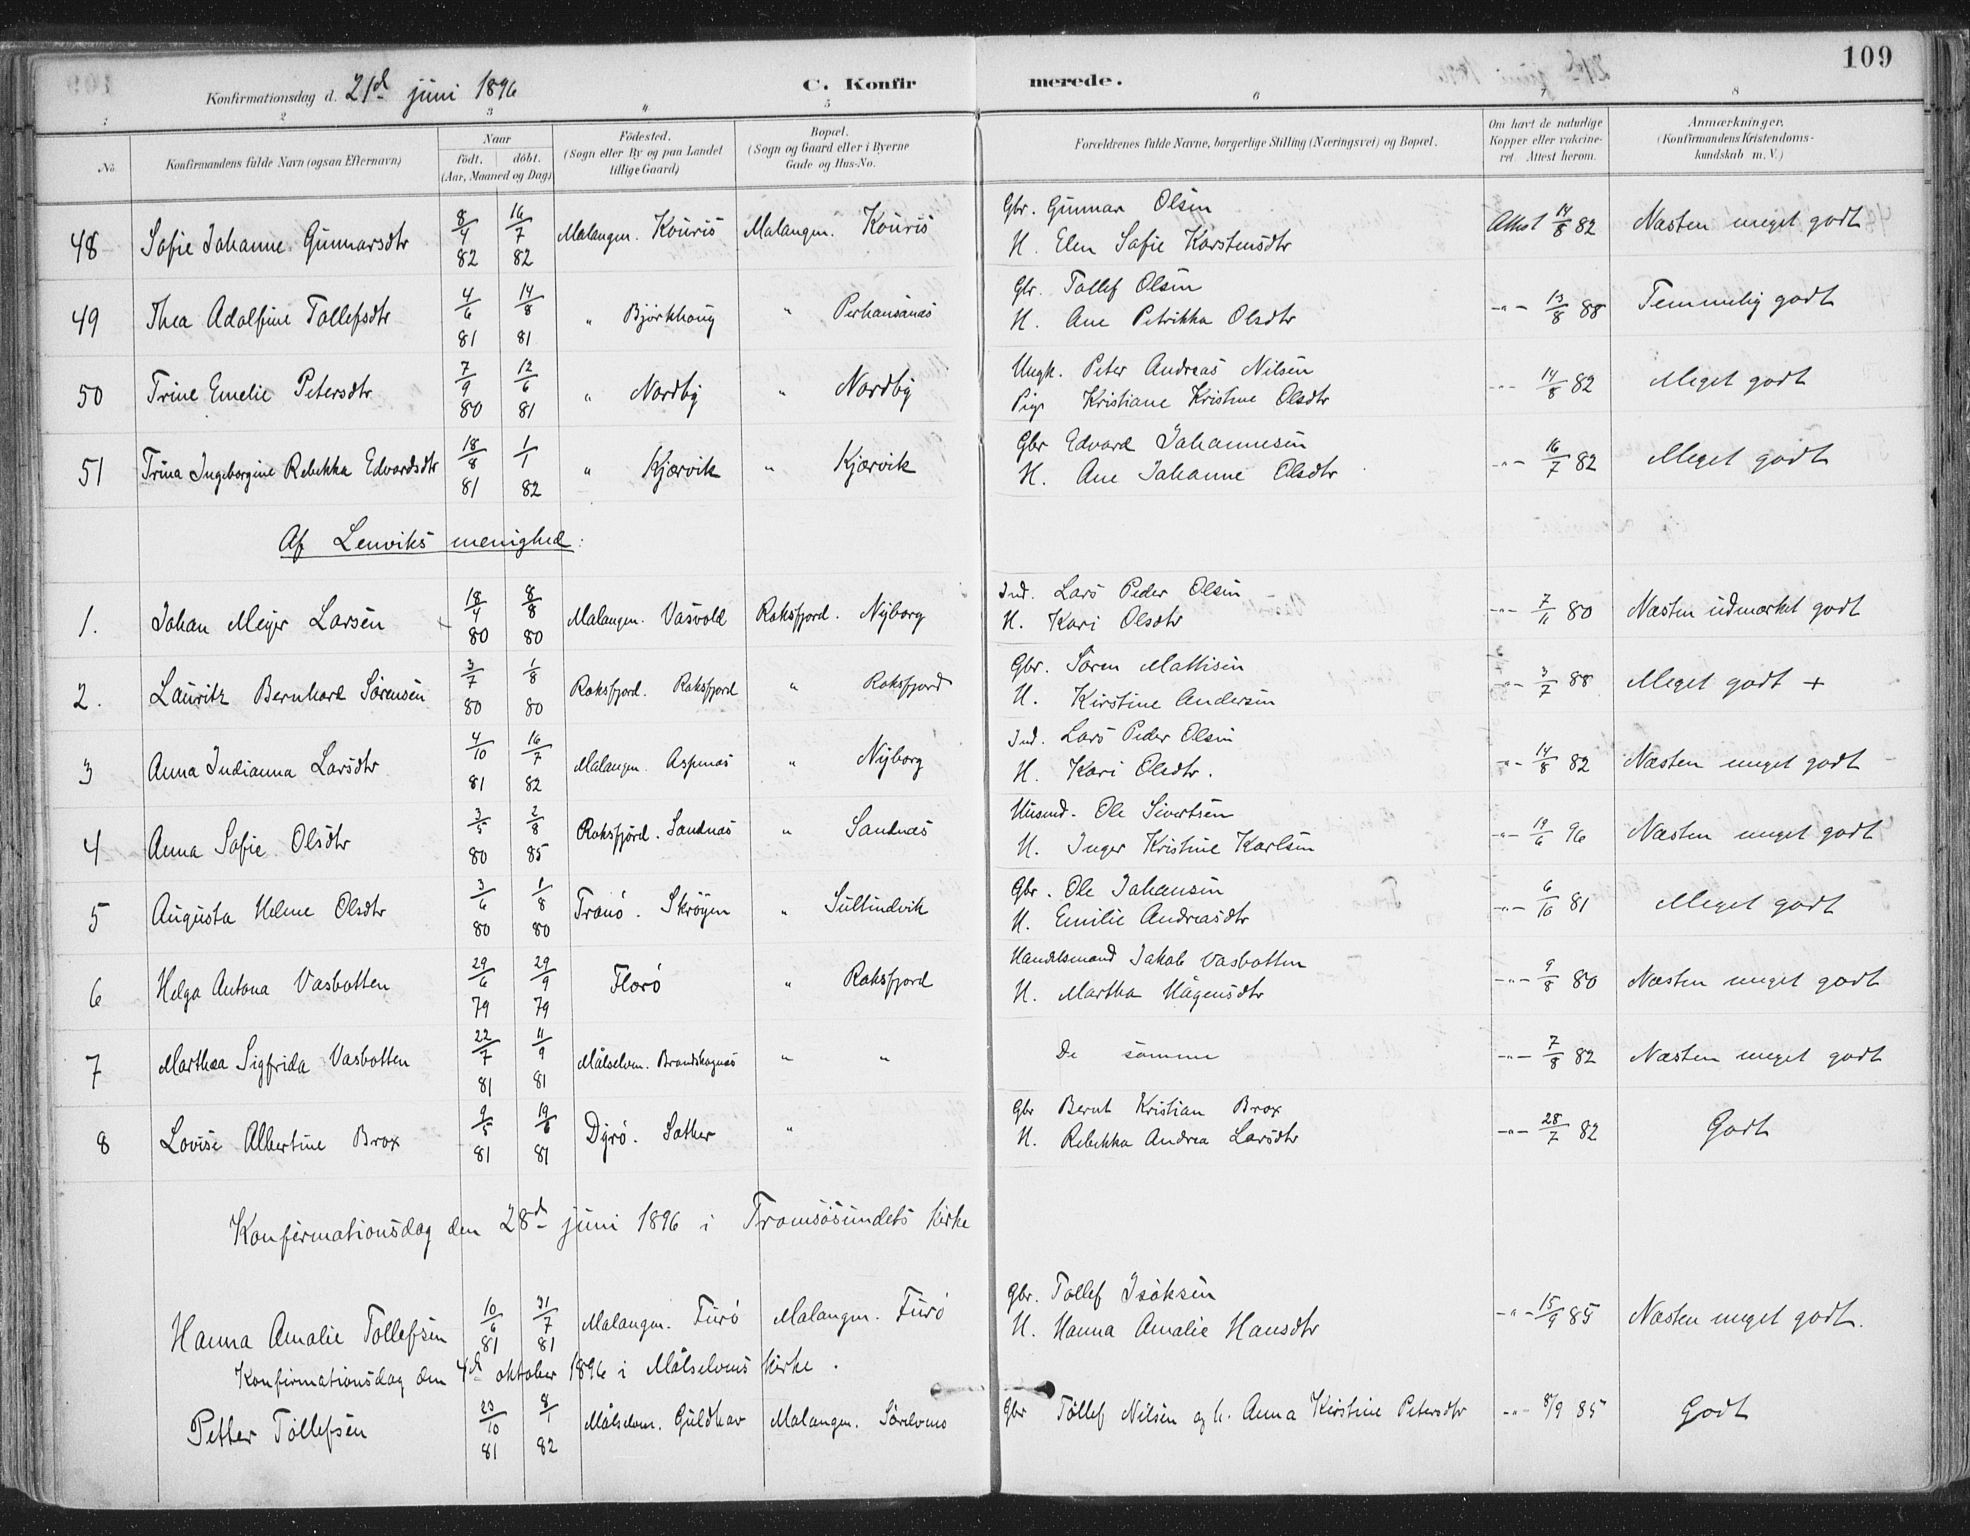 109
Konfirmationsdag d. 21de juni 1896
C. Konfirmerede.
1 2 3 4 5 6 7 8
No. Konfirmandens fulde Navn (ogsaa Efternavn) Naar födt. döbt. (Aar, Maaned og Dag) Födested. (Sogn eller By og paa Landet tillige Gaard) Bopæl. (Sogn og Gaard eller i Byerne Gade og Hus-No. Forældrenes fulde Navne, borgerlige Stilling (Næringsvei) og Bopæl. Om havt de naturlige Kopper eller vakcineret. Attest herom. Anmærkninger. (Konfirmandens Kristendomskundskab m. V.)
48 Sofie Johanne Gunnarsdtr 8/4 82 16/7 82 Malangen. Kouris Malangen. Kouris Gbr. Gunnar Olsen
H. Elen Sofie Karstensdtr Attest 14/8 82 Næsten meget godt
49 Thea Adolfine Tollefsdtr 4/6 81 14/8 81 " Bjørkhoug " Perhansanæs Gbr. Tollef Olsen
H. Ane Petrikka Olsdtr -"- 13/8 88 Temmelig godt
50 Trine Emelie Petersdtr 7/9 80 12/6 81 " Nordby " Nordby Ungk. Peter Andreas Nilsen
Pige Kristiane Kristine Olsdtr -"- 14/8 82 Meget godt
51 Trina Ingeborgine Rebekka Edvardsdtr 18/8 81 1/1 82 " Kjærvik " Kjærvik Gbr Edvard Johannesen
H. Ane Johanne Olsdtr -"- 16/7 82 Meget godt
Af Lenviks menighed:
1. Johan Meyer Larsen 18/4 80 8/8 80 Malangen. Vasvold Roksfjord. Nyborg Ind. Lars Peder Olsen
H. Kari Olsdtr -"- 7/11 80 Næsten udmærket godt
2. Lauritz Bernhard Sørensen 3/7 80 1/8 80 Roksfjord. Roksfjord " Roksfjord Gbr. Søren Mathisen
H. Kirstine Andersen -"- 3/7 88 Meget godt +
3 Anna Indianna Larsdtr 4/10 81 16/7 82 Malangen Aspenæs " Nyborg Ind. Lars Peder Olsen
H. Kari Olsdtr. -"- 14/8 82 Næsten meget godt
4 Anna Sofie Olsdtr 3/5 80 2/8 85 Roksfjord. Sandnæs " Sandnæs Husmd. Ole Sivertsen
H. Inger Kristine Karlsen -"- 19/6 96 Næsten meget godt
5 Augusta Helene Olsdtr 3/6 80 1/8 80 Tranø. Skrøyen " Sultindvik Gbr. Ole Johansen
H. Emilie Andreasdtr -"- 6/10 81 Meget godt
6 Helga Antona Vasbotten 29/6 79 29/9 79 Florø " Roksfjord Handelsmand Jakob Vasbotten
H. Martha Hågensdtr -"- 9/8 80 Næsten meget godt
7 Marthea Sigfrida Vasbotten 22/7 81 11/9 81 Målselven. Brandskognæs " " De samme -"- 7/8 82 Næsten meget godt
8 Lovise Albertine Brox 9/5 81 19/6 81 Dyrø. Sæther " Gbr Bernt Kristian Brox
H. Rebekka Andrea Larsdtr -"- 28/7 82 Godt
Konfirmationsdag den 28de juni 1896 i Tromsøsundets kirke
Hanna Amalie Tollefsen 10/6 81 31/7 81 Malangen. Furø Malangen. Furø Gbr. Tollef Isaksen
H. Hanna Amalie Hansdtr -"- 15/9 85 Næsten meget godt.
Konfirmationsdag den 4de oktober 1896 i Målselvens kirke.
Petter Tollefsen 23/10 81 8/1 82 Målselven. Guldhav Malangen. Sørelvens Gbr Tollef Nilsen og h. Anna Kirstine Petersdtr -"- 8/9 85 Godt